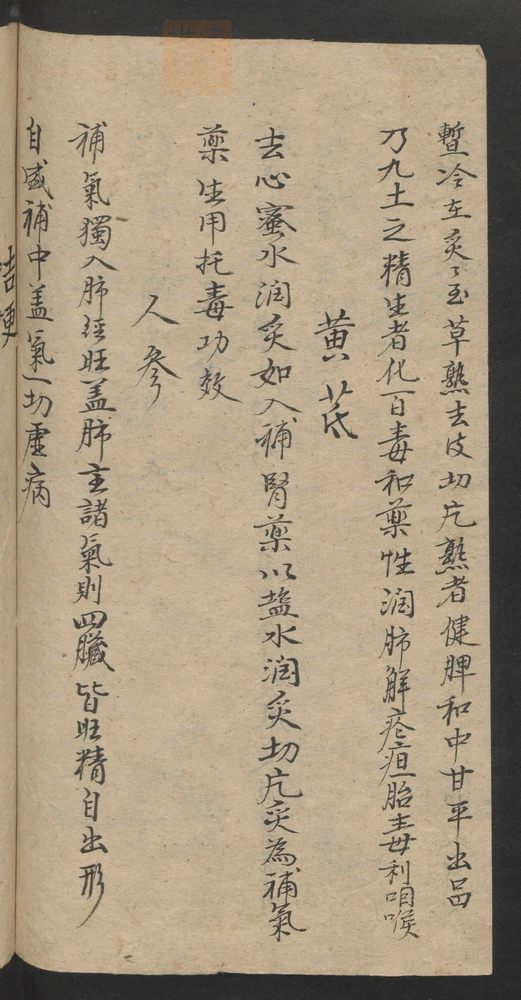 暫冷在炙〻至草熟去皮切片熟者健脾和中甘平出品
乃九土之精生者化百毒和藥性润肺解疮疽胎毒利咽喉
黄芪
去心蜜水润炙如入補腎藥以盐水润炙切片炙為補氣
藥生用托毒功效
人參
補氣獨入肺经旺盖肺主諸氣則四臟皆旺精自出形
自盛補中盖氣一切虚病
桔梗